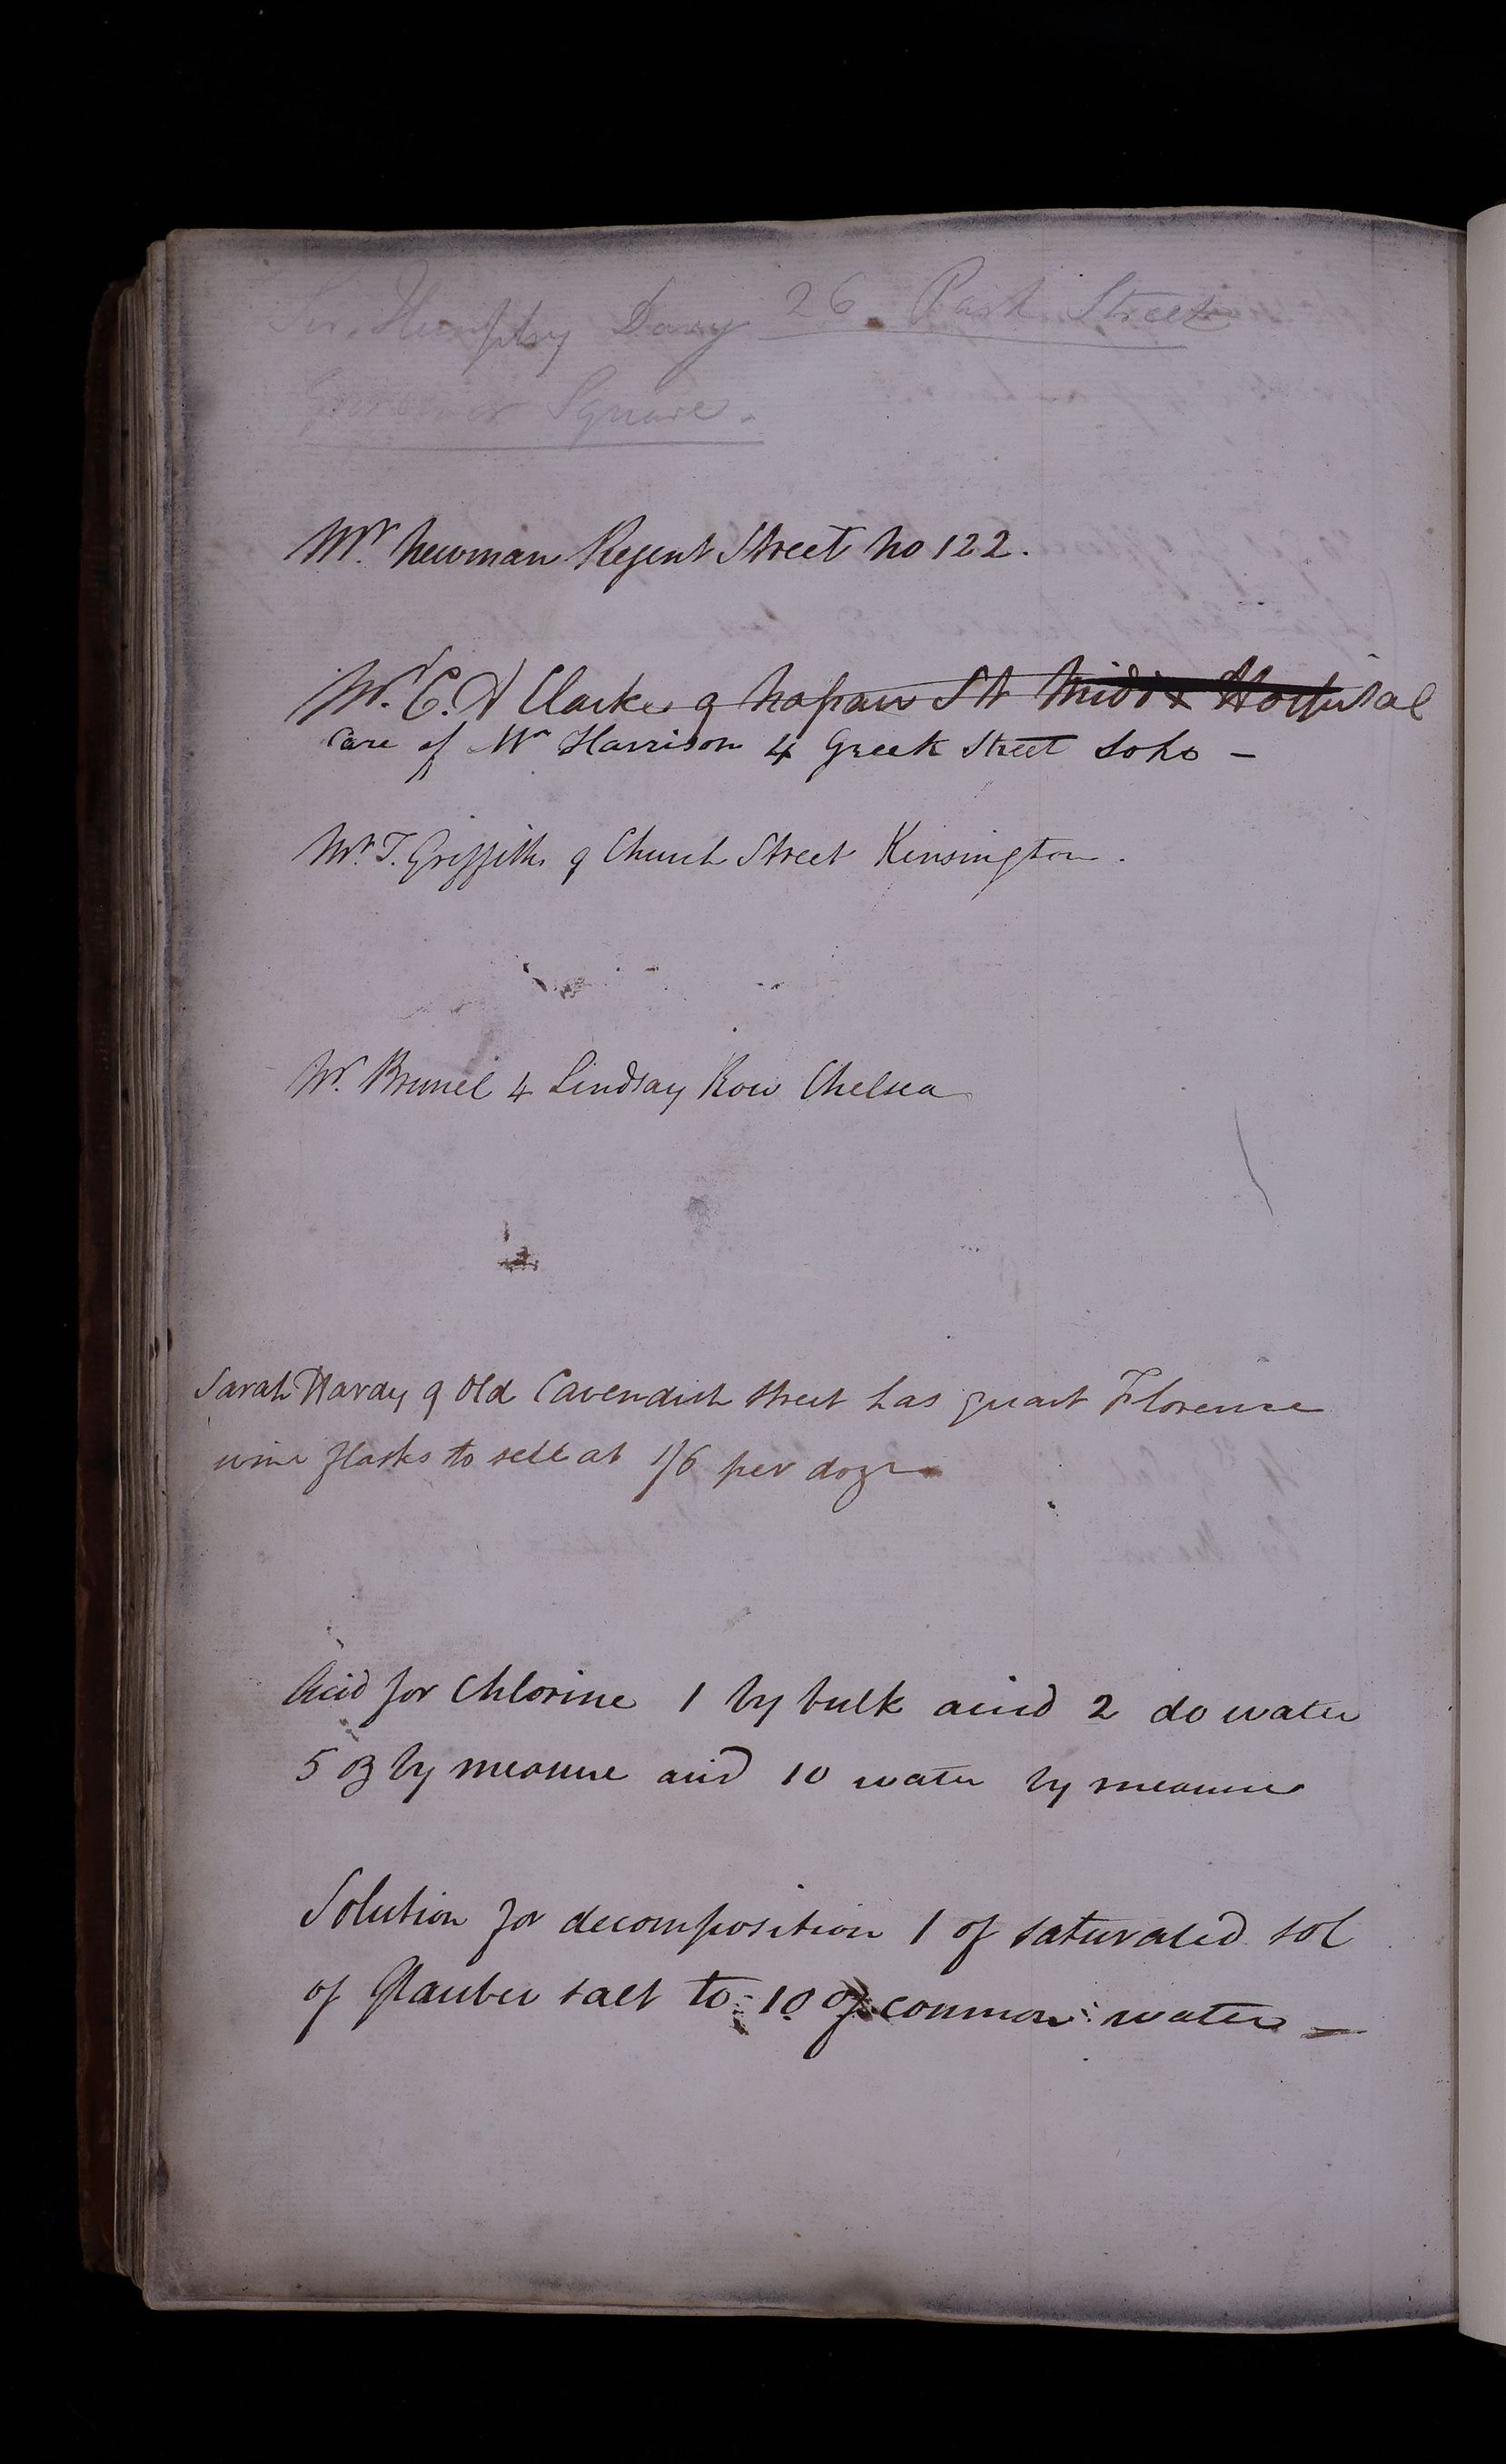 Sir. Humphry Davy 26 Park Street
Grosvenor Square.
Mr. Newman Regent Street No 122.
Mr. C. A Clarke 9 Nassau St Middx Hospital
Care of Mr Harrison 4 Greek Street Soho -
Mr. T. Griffiths 9 Church Street Kensington.
Mr. Brunel 4 Lindsay Row Chelsea
Sarah Hardy 9 Old Cavendish Street has quart Florence
wine flasks to sell at 1/6 per dozn
Acid for Chlorine 1 by bulk acid 2 do water
5 oz by measure acid 10 water by measure
Solution for decomposition 1 of saturated sol
of Glauber salt to 10 of common water -